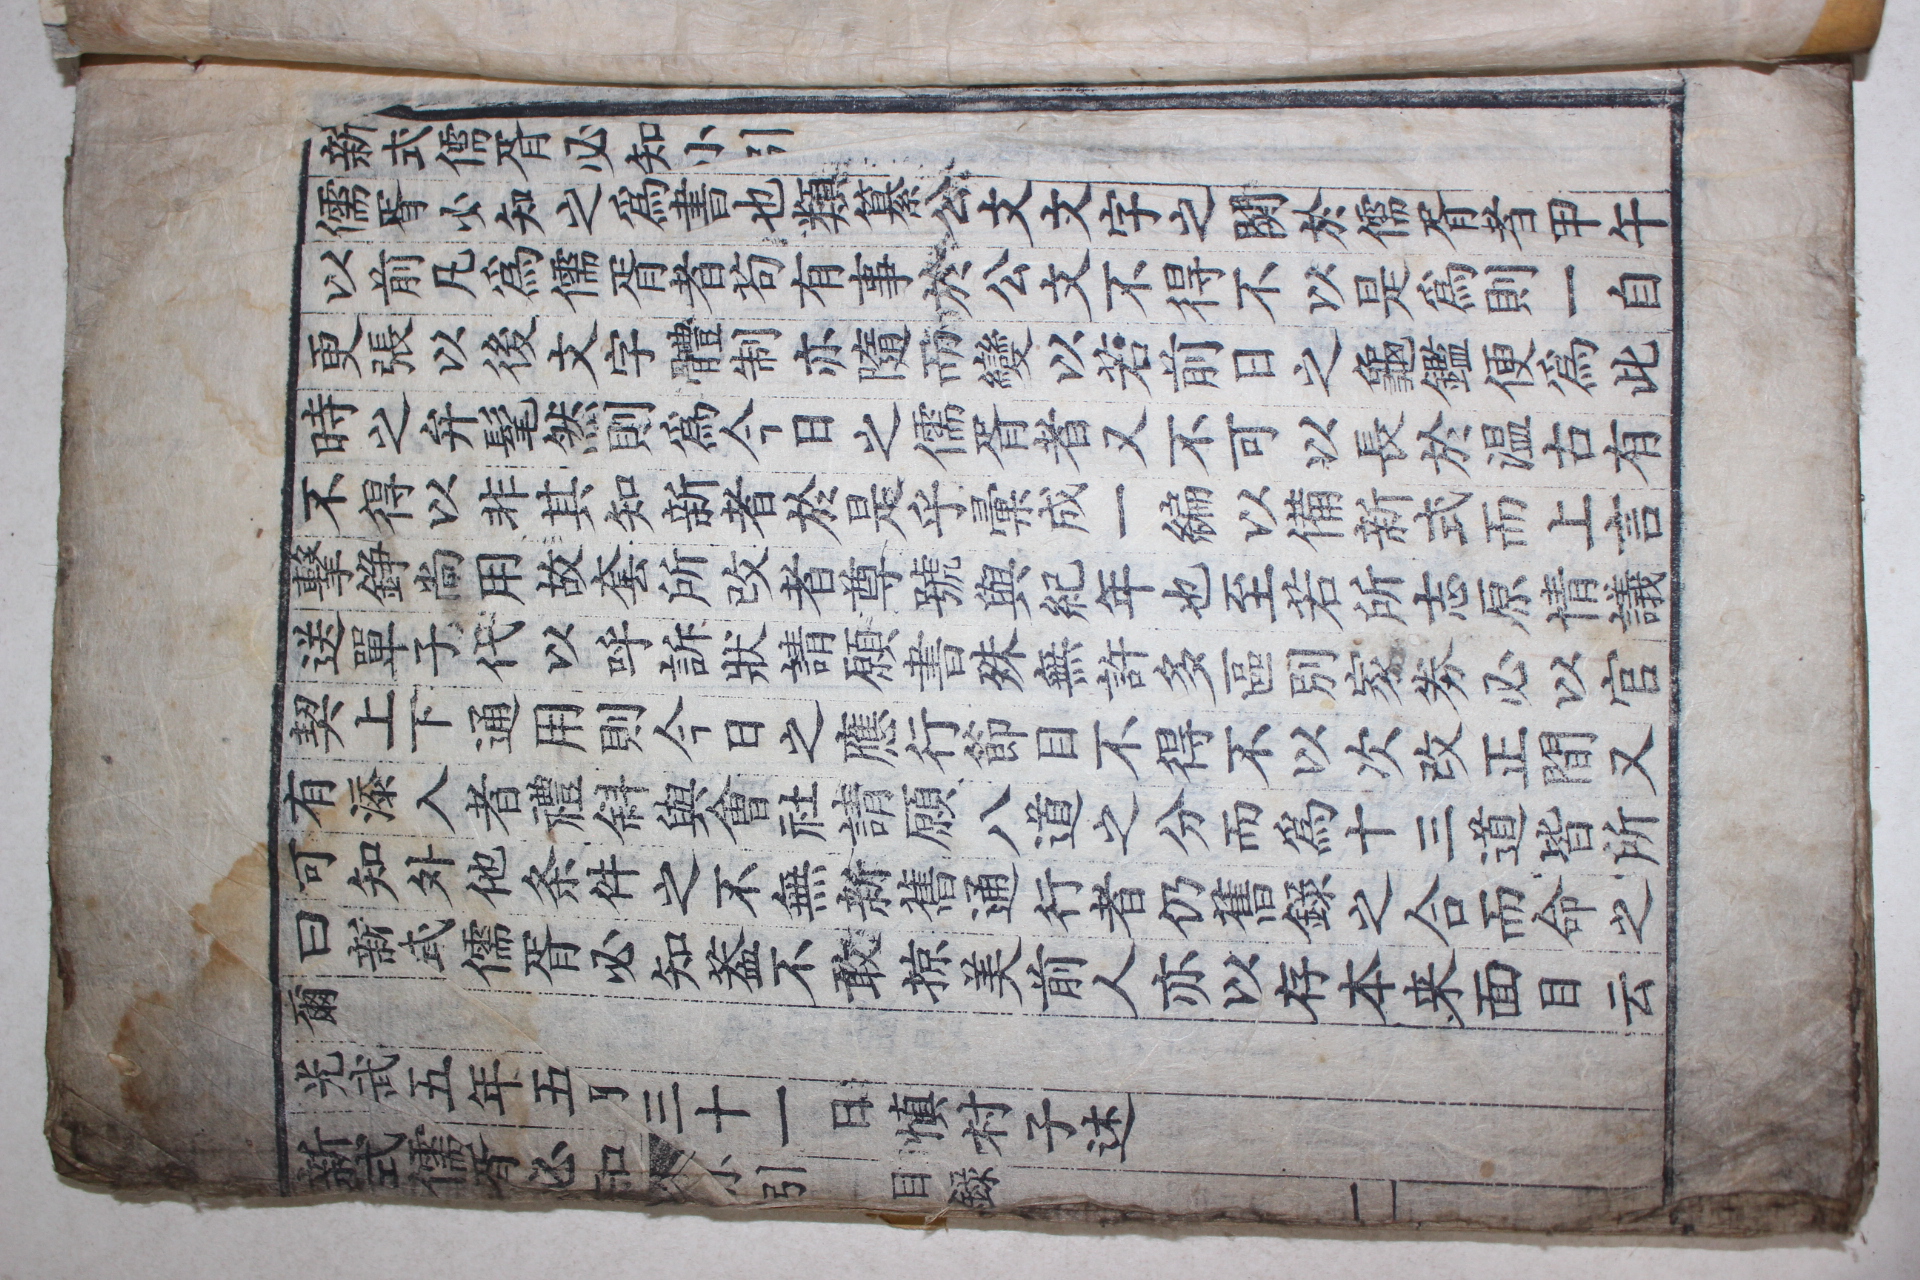 新式儒胥必知小引
儒胥必知之爲書也類纂公文文字之關於儒胥者甲午
以前凡爲儒胥者苟有事於公文不得不以是爲則一自
更張以後文字體制亦隨而變以若前日之龜鑑便爲此
時之弁髦然則爲今日之儒胥者又不可以長於溫古有
不得以非其知新者於是乎彙成一編以備新式而上言
擊錚尚用故套所改者尊號與紀年也至若所志原情議
送單子代以呼訴狀請願書殊無許多區別家券必以官
契上下通用則今日之應行節目不得不以次改正間又
有添入者禮斜與會社請願八道之分而爲十三道皆所
可知外他条件之不無新舊通行者仍舊錄之合而命之
曰新式儒胥必知蓋不敢掠美前人亦以存本来面目云
爾
光武五年五月三十一日愼村子述
新式儒胥必知 小引 目錄 一